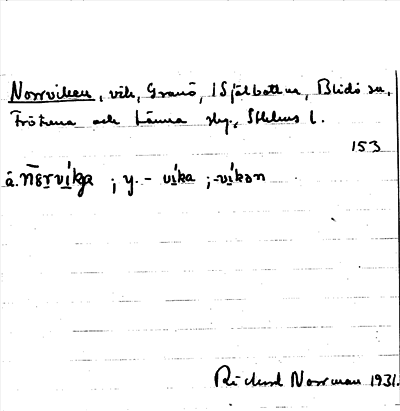 Norrviken, vik, Granö, 1 Själbottna, Blidö sn,
Frötuna och Länna skg., Sthlms l.
153
å. nørvíka ; y. - víka ; -víkən
Richard Norrman 1931.